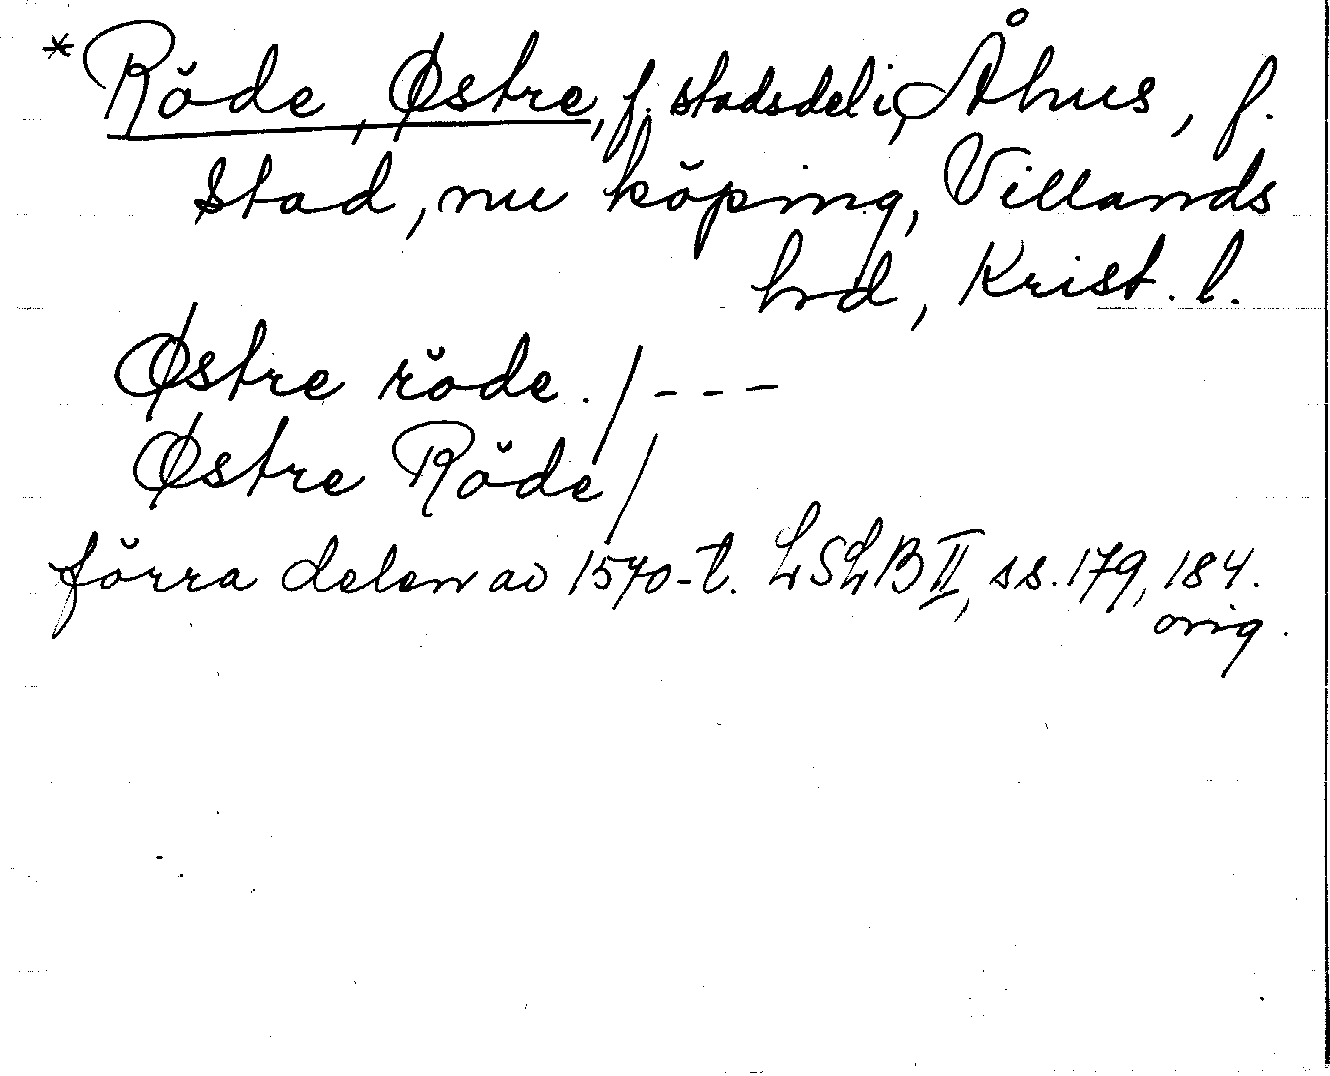 *Röde, Østre, f. stadsdel i, Åhus, f.
stad, nu köping, Villands
hrd, Krist. l.
Østre röde. / - - -
Østre Röde /
förra delen av 1570-t. LSLB II, ss. 179, 184.
orig.